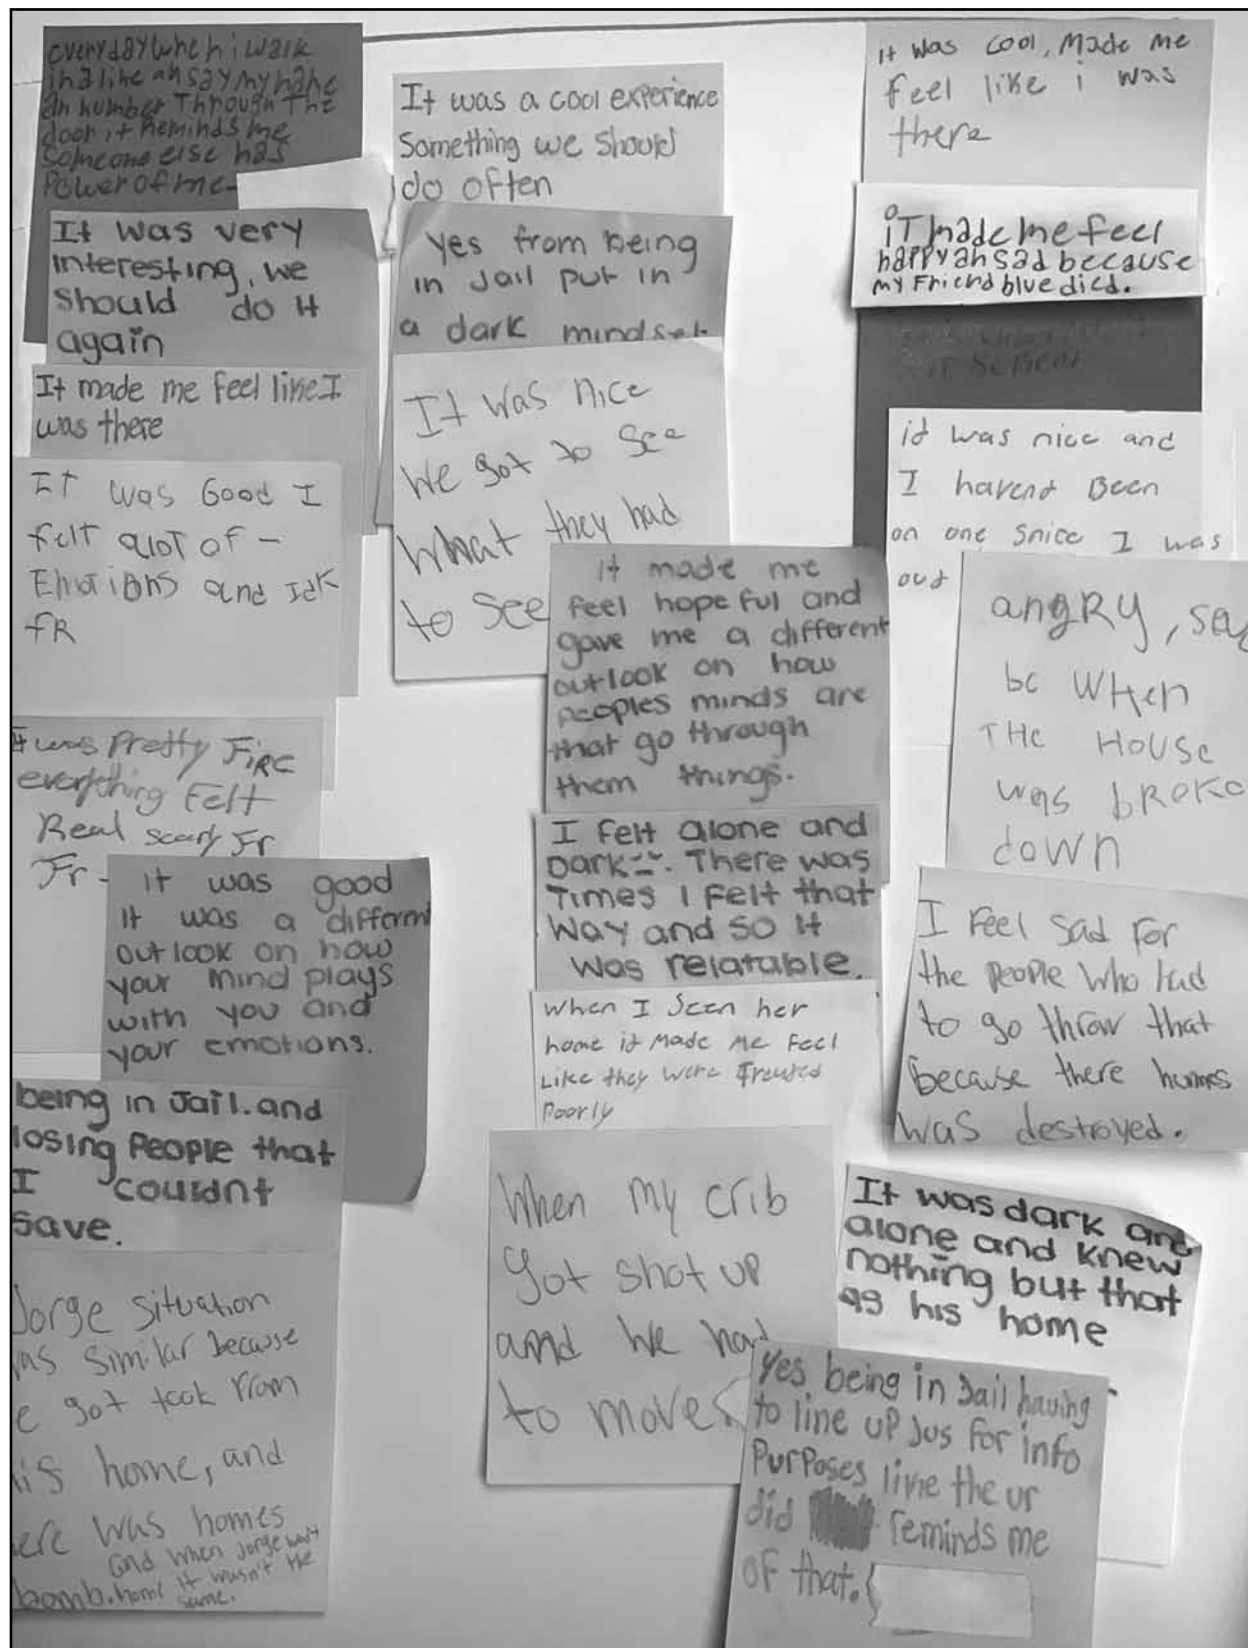 everyday when i walk
in a line an say my name
an number Through The
door it Reminds me
Someone else has
Power of me-
It was very
interesting, we
should do it
again
It made me feel like I
was there
It was Good I
felt alot of -
Emotions and Idk
fR
It was Pretty Fire
everything Felt
Real scary Fr
Fr-
it was good
it was a different
outlook on how
your mind plays
with you and
your emotions.
being in Jail. and
losing People that
I couldnt
save.
Jorge situation
was similar because
he got took from
his home, and
was homes
and when Jorge
bomb. home it wasn't the
same.
It was a cool experience
Something we should
do often
Yes from being
in Jail put in
a dark mindset
It was nice
We got to see
What they had
to see
it made me
feel hopeful and
gave me a different
outlook on how
peoples minds are
that go through
them things.
I felt alone and
Dark. There was
Times I felt that
Way and so it
was relatable.
When I Seen her
home it Made Me Feel
Like they Were Treated
Poorly
When my crib
got shot up
and we had
to move
it was cool, Made me
feel like i was
there
iT made me feel
happy an sad because
my Friend blue died.
it was nice and
I havent Been
on one Snice I was
out
angRy, say
bc WHen
THe HoUSe
was bRoKe
down
I Feel Sad For
the people who had
to go throw that
because there humes
was destroyed.
It was dark and
alone and knew
nothing but that
as his home
Yes being in Jail having
to line up Jus for info
Purposes like the ur
did reminds me
OF that.